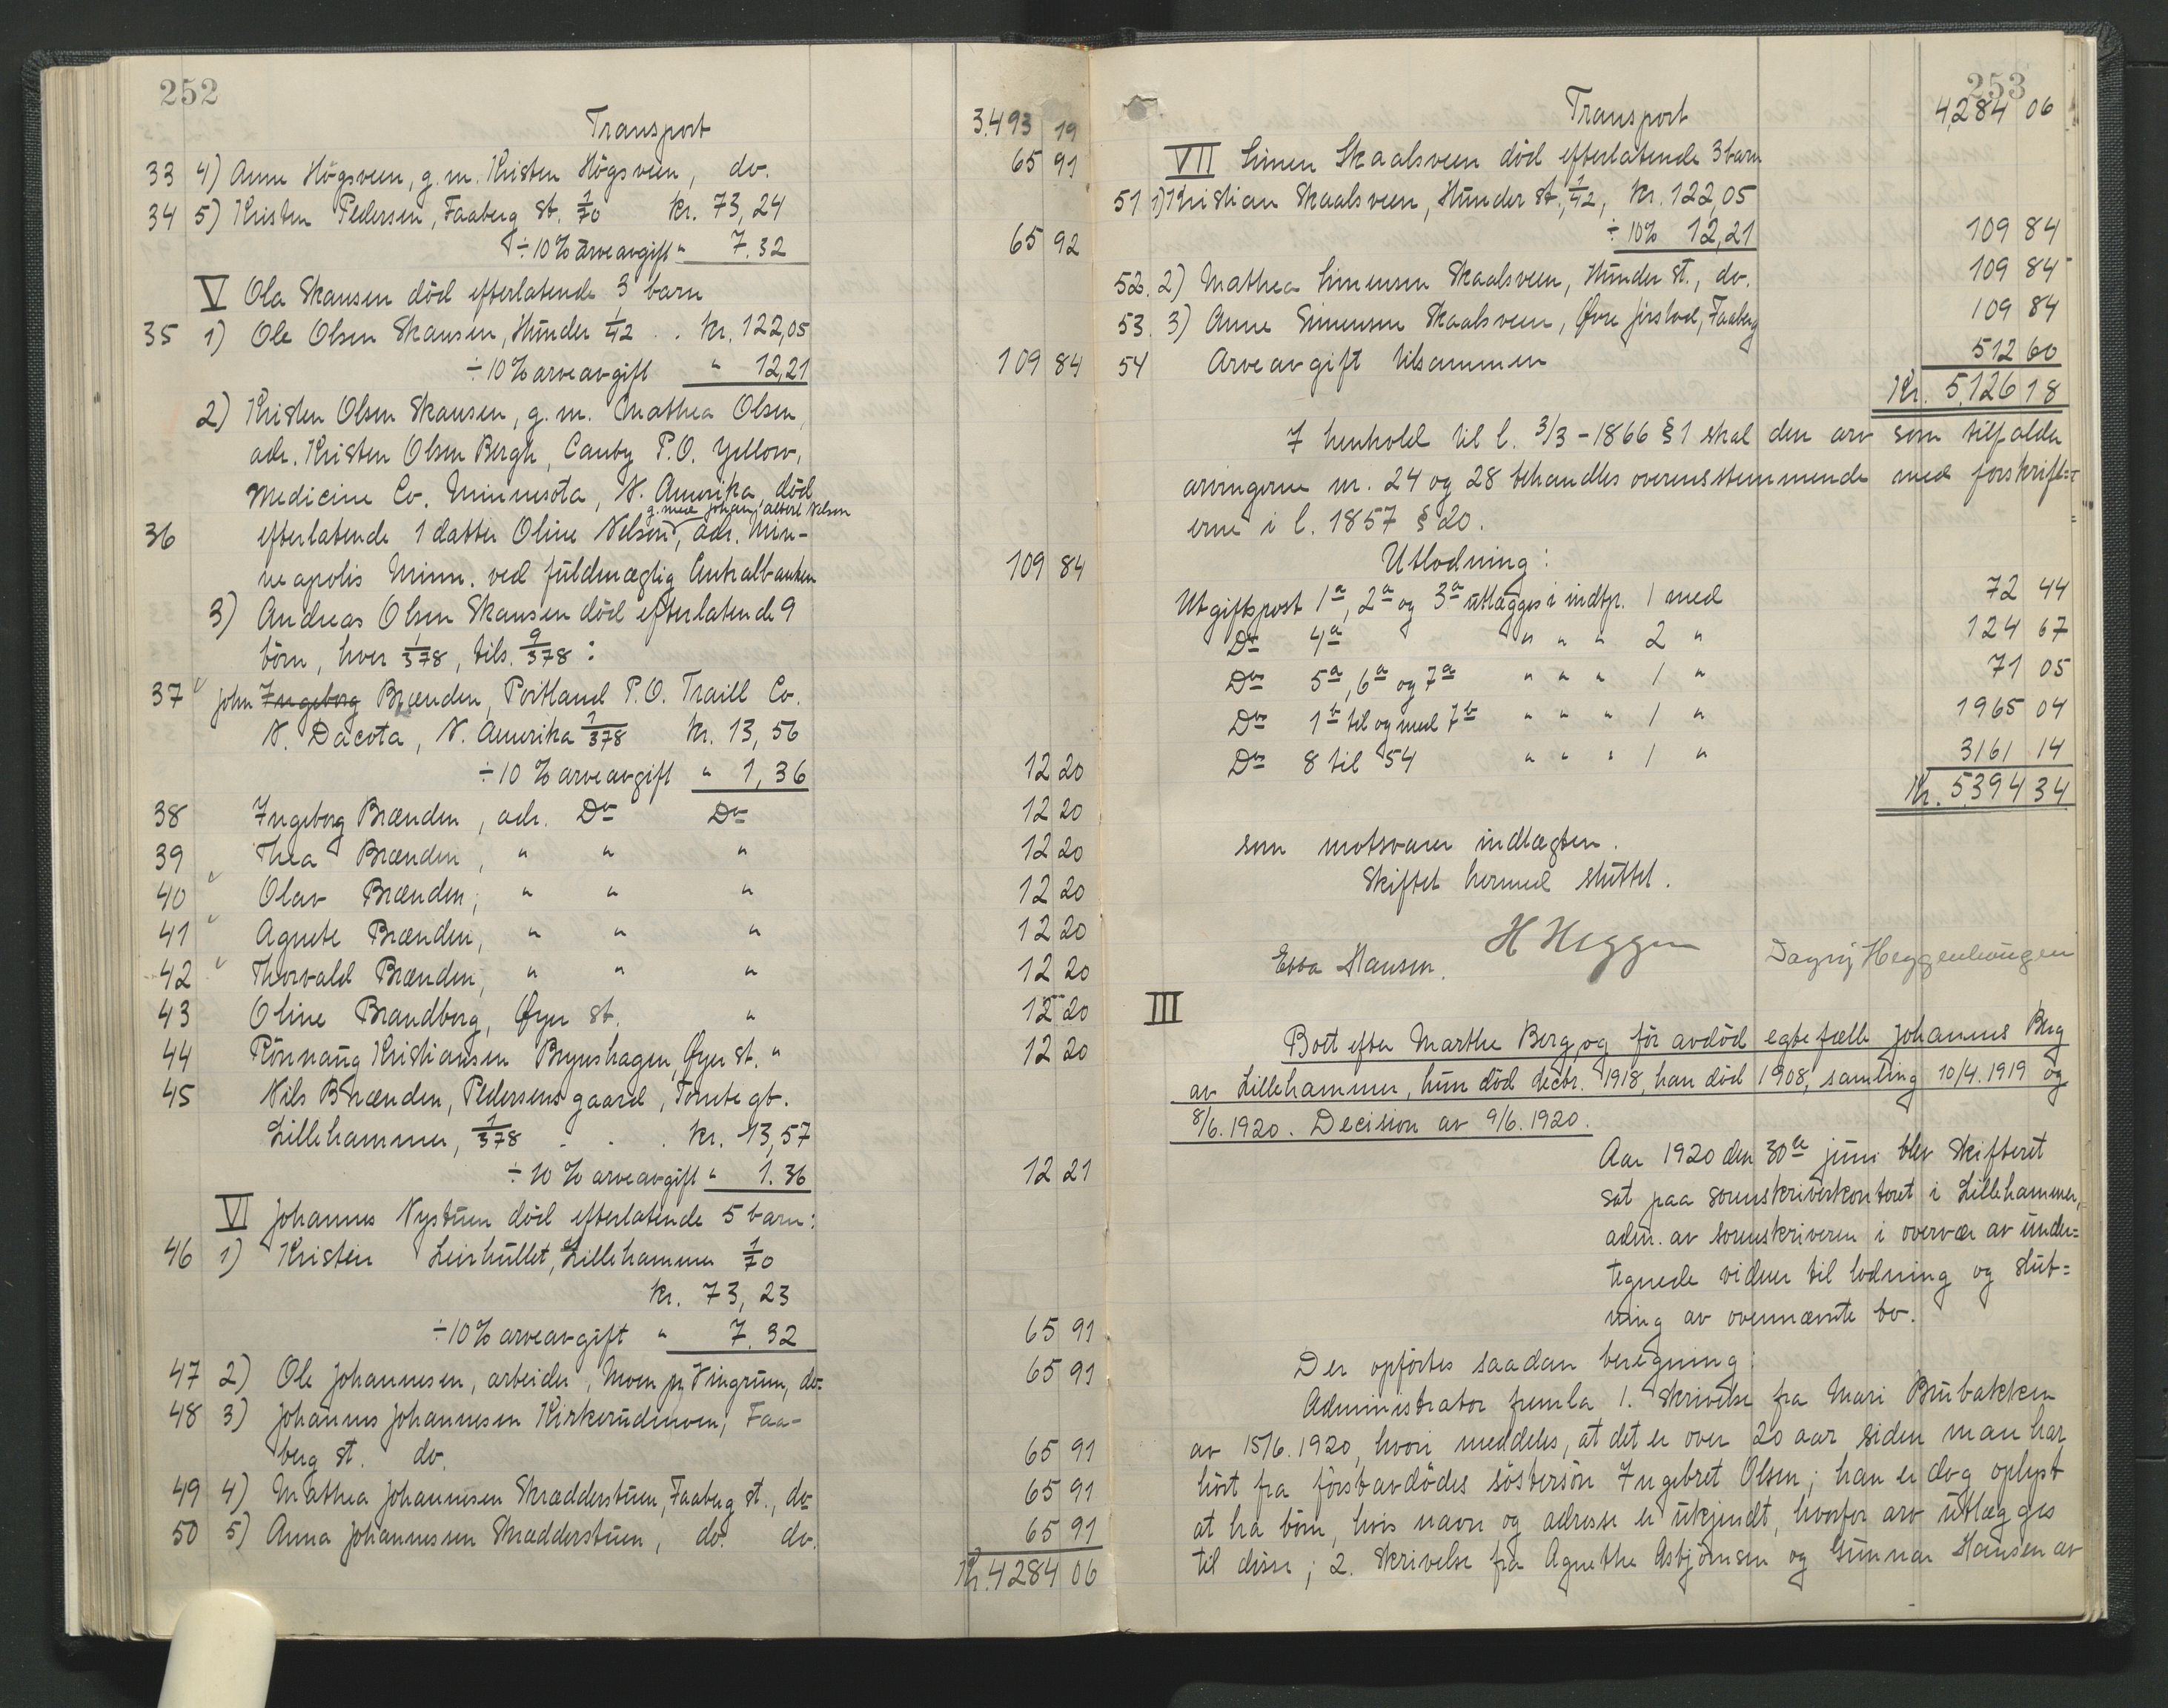 252
Transport 3.493 19
33 4) Anne Högsveen, g. m. Kristen Högsveen, do. 65 91
34 5) Kristen Pedersen, Faaberg St. 1/70 kr. 73,24
÷10% arveavgift " 7.32 65 92
V Ola Skansen död efterlatende 3 barn
35 1) Ole Olsen Skansen, Hunder 1/42 . . kr. 122,05
÷10% arveavgift " 12,21 109 84
2) Kristen Olsen Skansen, g. m. Mathea Olsen,
adr. Kristen Olsen Bergh, Canby P.O. Yellow,
Medicine Co. Minnesota, N. Amerika, död
g. med Johan Albert Nelson
36 efterlatende 1 datter Oline Nelson, adr. Min-
neapolis Minn. ved fuldmægtig Centralbanken 109 84
3) Andreas Olsen Skansen död efterlatende 9
börn, hver 1/378, tils. 9/378 :
37 John Ingeborg Brænden, Portland P.O. Traill Co.
N. Dacota, N. Amerika 1/378 kr. 13,56
÷10% arveavgift " 1,36 12 20
38 Ingeborg Brænden, adr. Do Do 12 20
39 Thea Brænden, " " " 12 20
40 Olav Brænden, " " " 12 20
41 Agnete Brænden, " " " 12 20
42 Thorvald Brænden, " " " 12 20
43 Oline Brandberg, Øyer st. " 12 20
44 Rönnaug Kristiansen Brynshagen, Øyer st. " 12 20
45 Nils Brænden, Pedersens gaard, Tomte gt.
Lillehammer, 1/378 - . . kr. 13,57
÷10% arveavgift " 1.36 12 21
VI Johannes Nystuen död efterlatende 5 barn:
46 1) Kristen Leirhullet, Lillehammer 1/70
kr. 73,23
÷10% arveavgift " 7.32 65 91
47 2) Ole Johannesen, arbeider, Moen pr Vingrum, do. 65 91
48 3) Johannes Johannesen Kirkerudmoen, Faa-
berg st. do. 65 91
49 4) Mathea Johannesen Skrædderstuen, Faaberg st., do 65 91
50 5) Anna Johannesen Skrædderstuen, do. do. 65 91
Kr. 4284 06
253
Transport 4,284 06
VII Simen Skaalsveen död efterlatende 3 barn
51 1) Kristian Skaalsveen, Hunder st., 1/42, kr. 122,05
÷10% 12,21 109 84
52. 2) Mathea Simensen Skaalsveen, Hunder st., do. 109 84
53. 3) Anne Simensen Skaalsveen, Øvre Jirstad, Faaberg 109 84
54 Arveavgift tilsammen 512 60
Kr. 5,126 18
I henhold til l. 3/3-1866 § 1 skal den arv som tilfalder
arvingerne nr. 24 og 28 behandles overensstemmende med forskrift=
erne i l. 1857 § 20.
Utlodning:
Utgiftspost 1a, 2a og 3a utlægges i indtgr. 1 med 72 44
Do 4a " " " 2 " 124 67
Do 5a, 6a og 7a " " " 1 " 71 05
Do 1b til og med 7b " " " 1 " 1965 04
Do 8 til 54 " " " 1 " 3161 14
Kr. 5394 34
som motsvarer indtægten.
Skiftet hermed sluttet.
H Heggen
Ebba Hansen. Dagny Heggenhougen
III
Boet efter Marthe Berg og för avdöd egtefælle Johannes Berg
av Lillehammer, hun död decbr. 1918, han död 1908, samling 10/4. 1919 og
8/6. 1920. Decision av 9/6. 1920.
Aar 1920 den 30te juni blev skifteret
sat paa sorenskriverkontoret i Lillehammer,
adm. av sorenskriveren i overvær av under=
tegnede vidner til lodning og slut=
ning av ovennævnte bo.
Der opförtes saadan beregning:
Administrator fremla 1. Skrivelse fra Mari Brubakken
av 15/6. 1920, hvori meddeles, at det er over 20 aar siden man har
hört fra förstavdödes söstersön Ingebret Olsen; han er dog oplyst
at ha börn, hvis navn og adresse er ukjendt, hvorfor arv utlægges
til disse; 2. Skrivelse fra Agnethe Asbjörnsen og Gunnar Hansen av